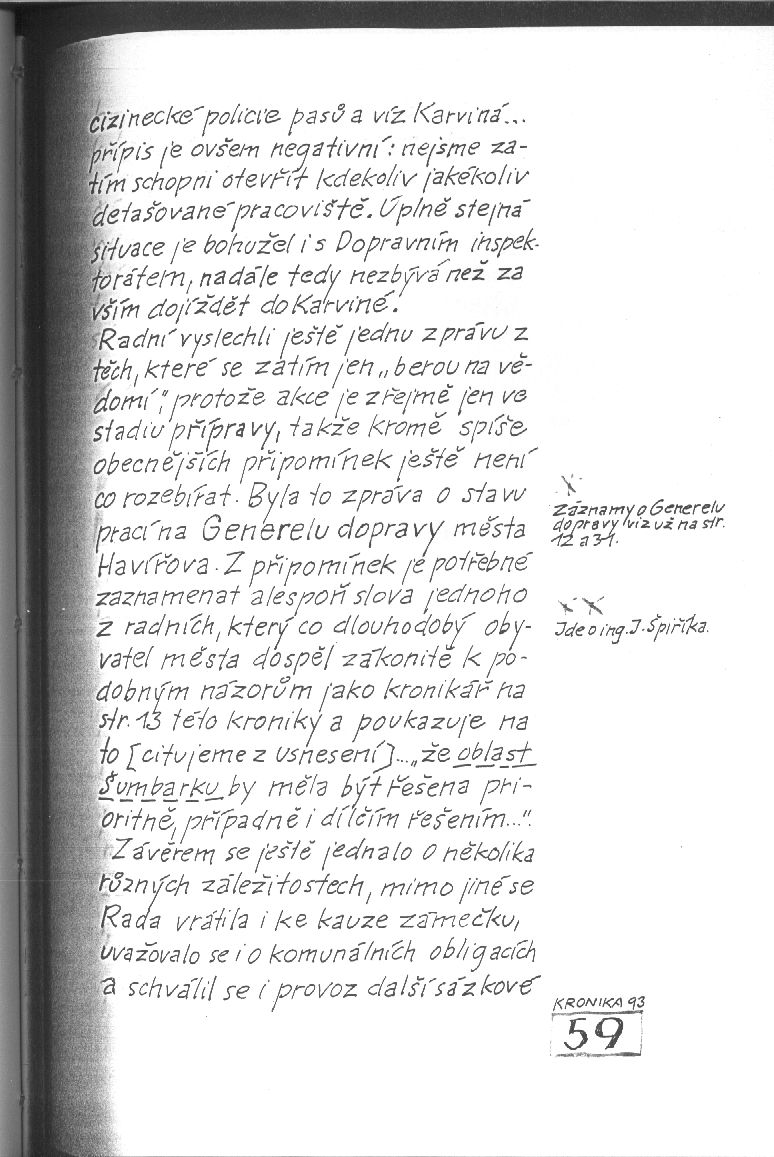 cizinecké policie pasů a víz Karviná...
přípis je ovšem negativní: nejsme za-
tím schopni otevřít kdekoliv jakékoliv
detašované pracoviště. Úplně stejná
situace je bohužel i s Dopravním inspek-
torátem, nadále tedy nezbývá než za
vším dojíždět do Karviné.
Radní vyslechli ještě jednu zprávu z
těch, které se zatím jen „berou na vě-
domí“, protože akce je zřejmě jen ve
stadiu přípravy, takže kromě spíše
obecnějších připomínek ještě není
co rozebírat. Byla to zpráva o stavu
prací na Generelu dopravy města
Havířova. Z připomínek je potřebné
zaznamenat alespoň slova jednoho
z radních, který co dlouhodobý oby-
vatel města dospěl zákonitě k po-
dobným názorům jako kronikář na
str. 13 této kroniky a poukazuje na
to [citujeme z usnesení]...„že oblast
Šumbarku by měla být řešena pri-
oritně, případně i dílčím řešením...“.
Závěrem se ještě jednalo o několika
různých záležitostech, mimo jiné se
Rada vrátila i ke kauze zámečku,
uvažovalo se i o komunálních obligacích
a schválil se i provoz další sázkové
X
Záznamy o Generelu
dopravy viz už na str.
12 a 31.
X X
Jde o ing. J. Špiříka.
KRONIKA 93
59